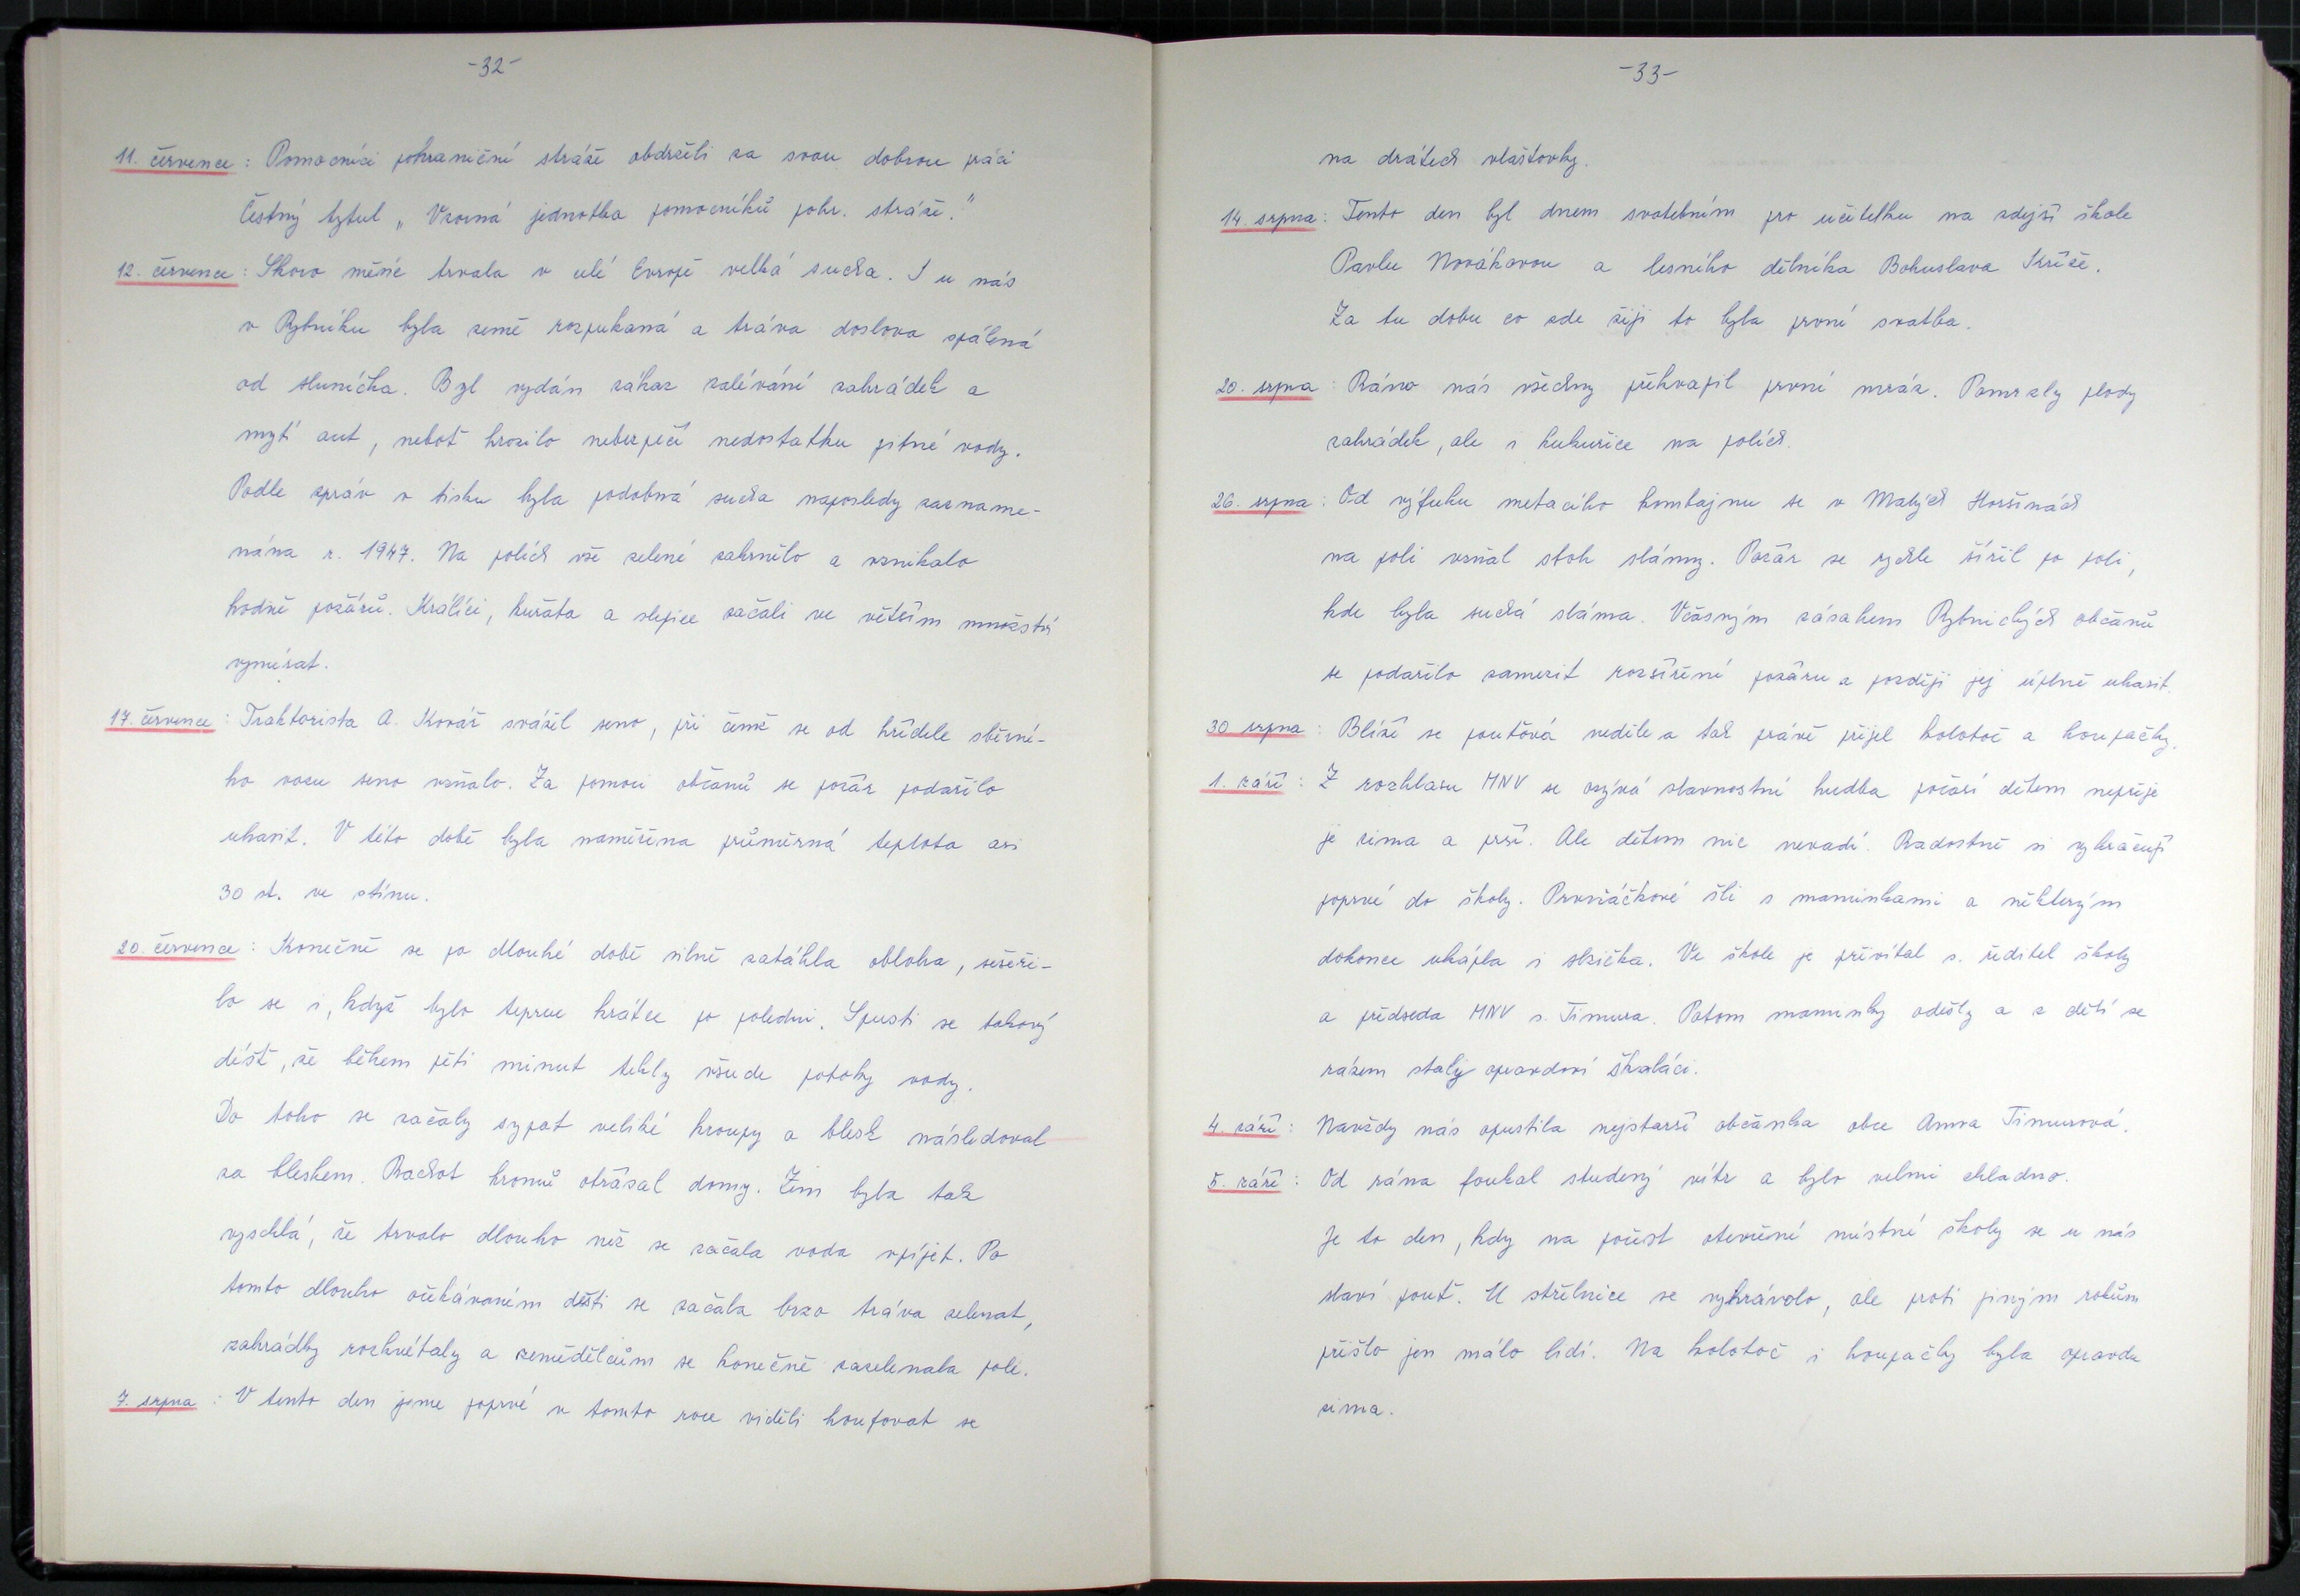 -32-
11. července: Pomocníci pohraniční stráže obdrželi za svou dobrou práci
Čestný tytul „Vzorná jednotka pomocníků pohr. stráže."
12. července: Skoro měsíc trvala v celé Evropě velká sucha. I u nás
v Rybníku byla země rozpukaná a tráva doslova spálená
od sluníčka. Byl vydán zákaz zalévání zahrádek a
mytí aut, neboť hrozilo nebezpečí nedostatku pitné vody.
Podle zpráv v tisku byla podobná sucha naposledy zazname-
nána r. 1947. Na polích vše zelené zakrnělo a vznikalo
hodně požárů. Králíci, kuřata a slepice začali ve větším množství
vymírat.
17. července: Traktorista A. Kováč svážel seno, při čemž se od hřídele sběrné-
ho vozu seno vzňalo. Za pomoci občanů se požár podařilo
uhasit. V této době byla naměřena průměrná teplota asi
30 st. ve stínu.
20. července: Konečně se po dlouhé době silně zatáhla obloha, sešeři-
lo se i, když bylo teprve krátce po poledni. Spusti se takový
déšť, že během pěti minut tekly všude potoky vody.
Do toho se začaly sypat veliké kroupy a blesk následoval
za bleskem. Rachot hromů otřásal domy. Zem byla tak
vyschlá, že trvalo dlouho než se začala voda vpíjet. Po
tomto dlouho očekávaném dešti se začala brzo tráva zelenat,
zahrádky rozkvétaly a zemědělcům se konečně zazelenala pole.
7. srpna: V tento den jsme poprvé v tomto roce viděli houfovat se
-33-
na drátech vlaštovky.
14. srpna: Tento den byl dnem svatebním pro učitelku na zdejší škole
Pavlu Novákovou a lesního dělníka Bohuslava Kříže.
Za tu dobu co zde žiji to byla první svatba.
20. srpna: Ráno nás všechny překvapil první mráz. Pomrzly plody
zahrádek, ale i kukuřice na polích.
26. srpna: Od výfuku metacího kombajnu se v Malých Horšínách
na poli vzňal stoh slámy. Požár se rychle šířil po poli,
kde byla suchá sláma. Včasným zásahem Rybnických občanů
se podařilo zamezit rozšíření požáru a později jej úplně uhasit.
30 srpna: Blíží se pouťová neděle a tak právě přijel kolotoč a houpačky.
1. září: Z rozhlasu MNV se ozývá slavnostní hudba počasí dětem nepřeje
je zima a prší. Ale dětem nic nevadí. Radostně si vykračují
poprvé do školy. Prvňáčkové šli s maminkami a některým
dokonce ukápla i slzička. Ve škole je přivítal s. ředitel školy
a předseda MNV s. Timura. Potom maminky odešly a z dětí se
rázem staly opravdoví školáci.
4. září: Navždy nás opustila nejstarší občanka obce Anna Timurová.
5. září: Od rána foukal studený vítr a bylo velmi chladno.
Je to den, kdy na počest otevření místní školy se u nás
slaví pouť. U střelnice se vyhrávalo, ale proti jiným rokům
přišlo jen málo lidí. Na kolotoč i houpačky byla opravdu
zima.